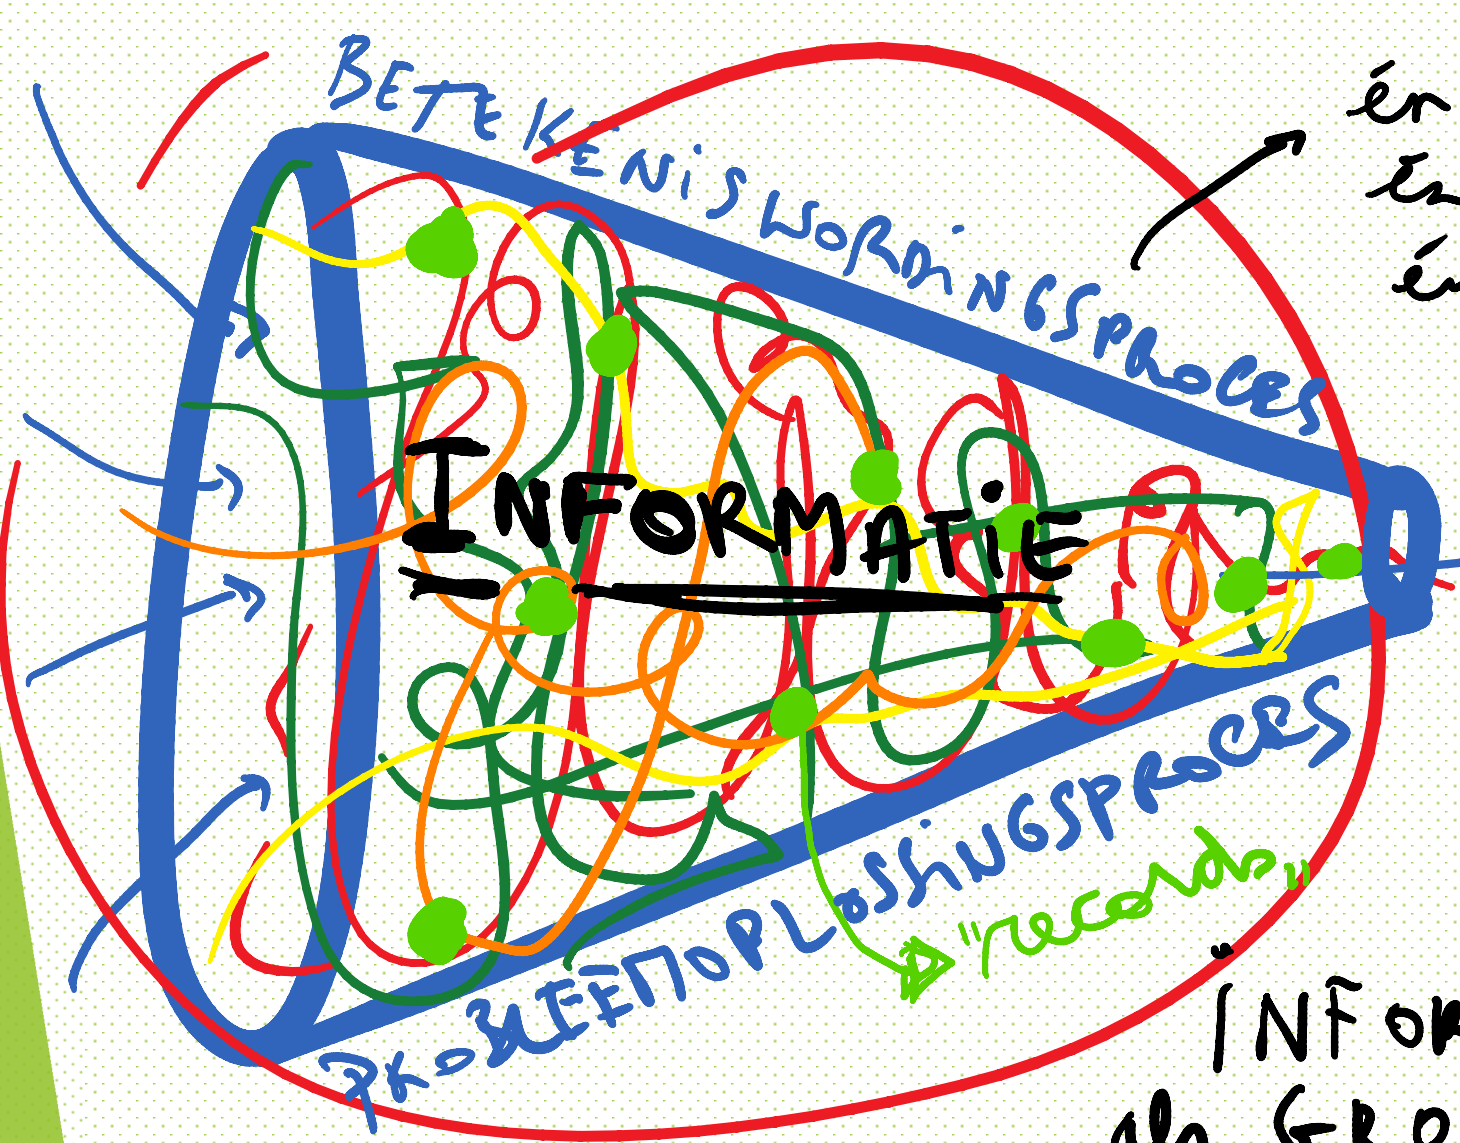 BETEKENISWORDINGSPROCES
én
én
én
INFORMATIE
PROBLEEMOPLOSSINGSPROCES
"records"
INFOR
als GRO